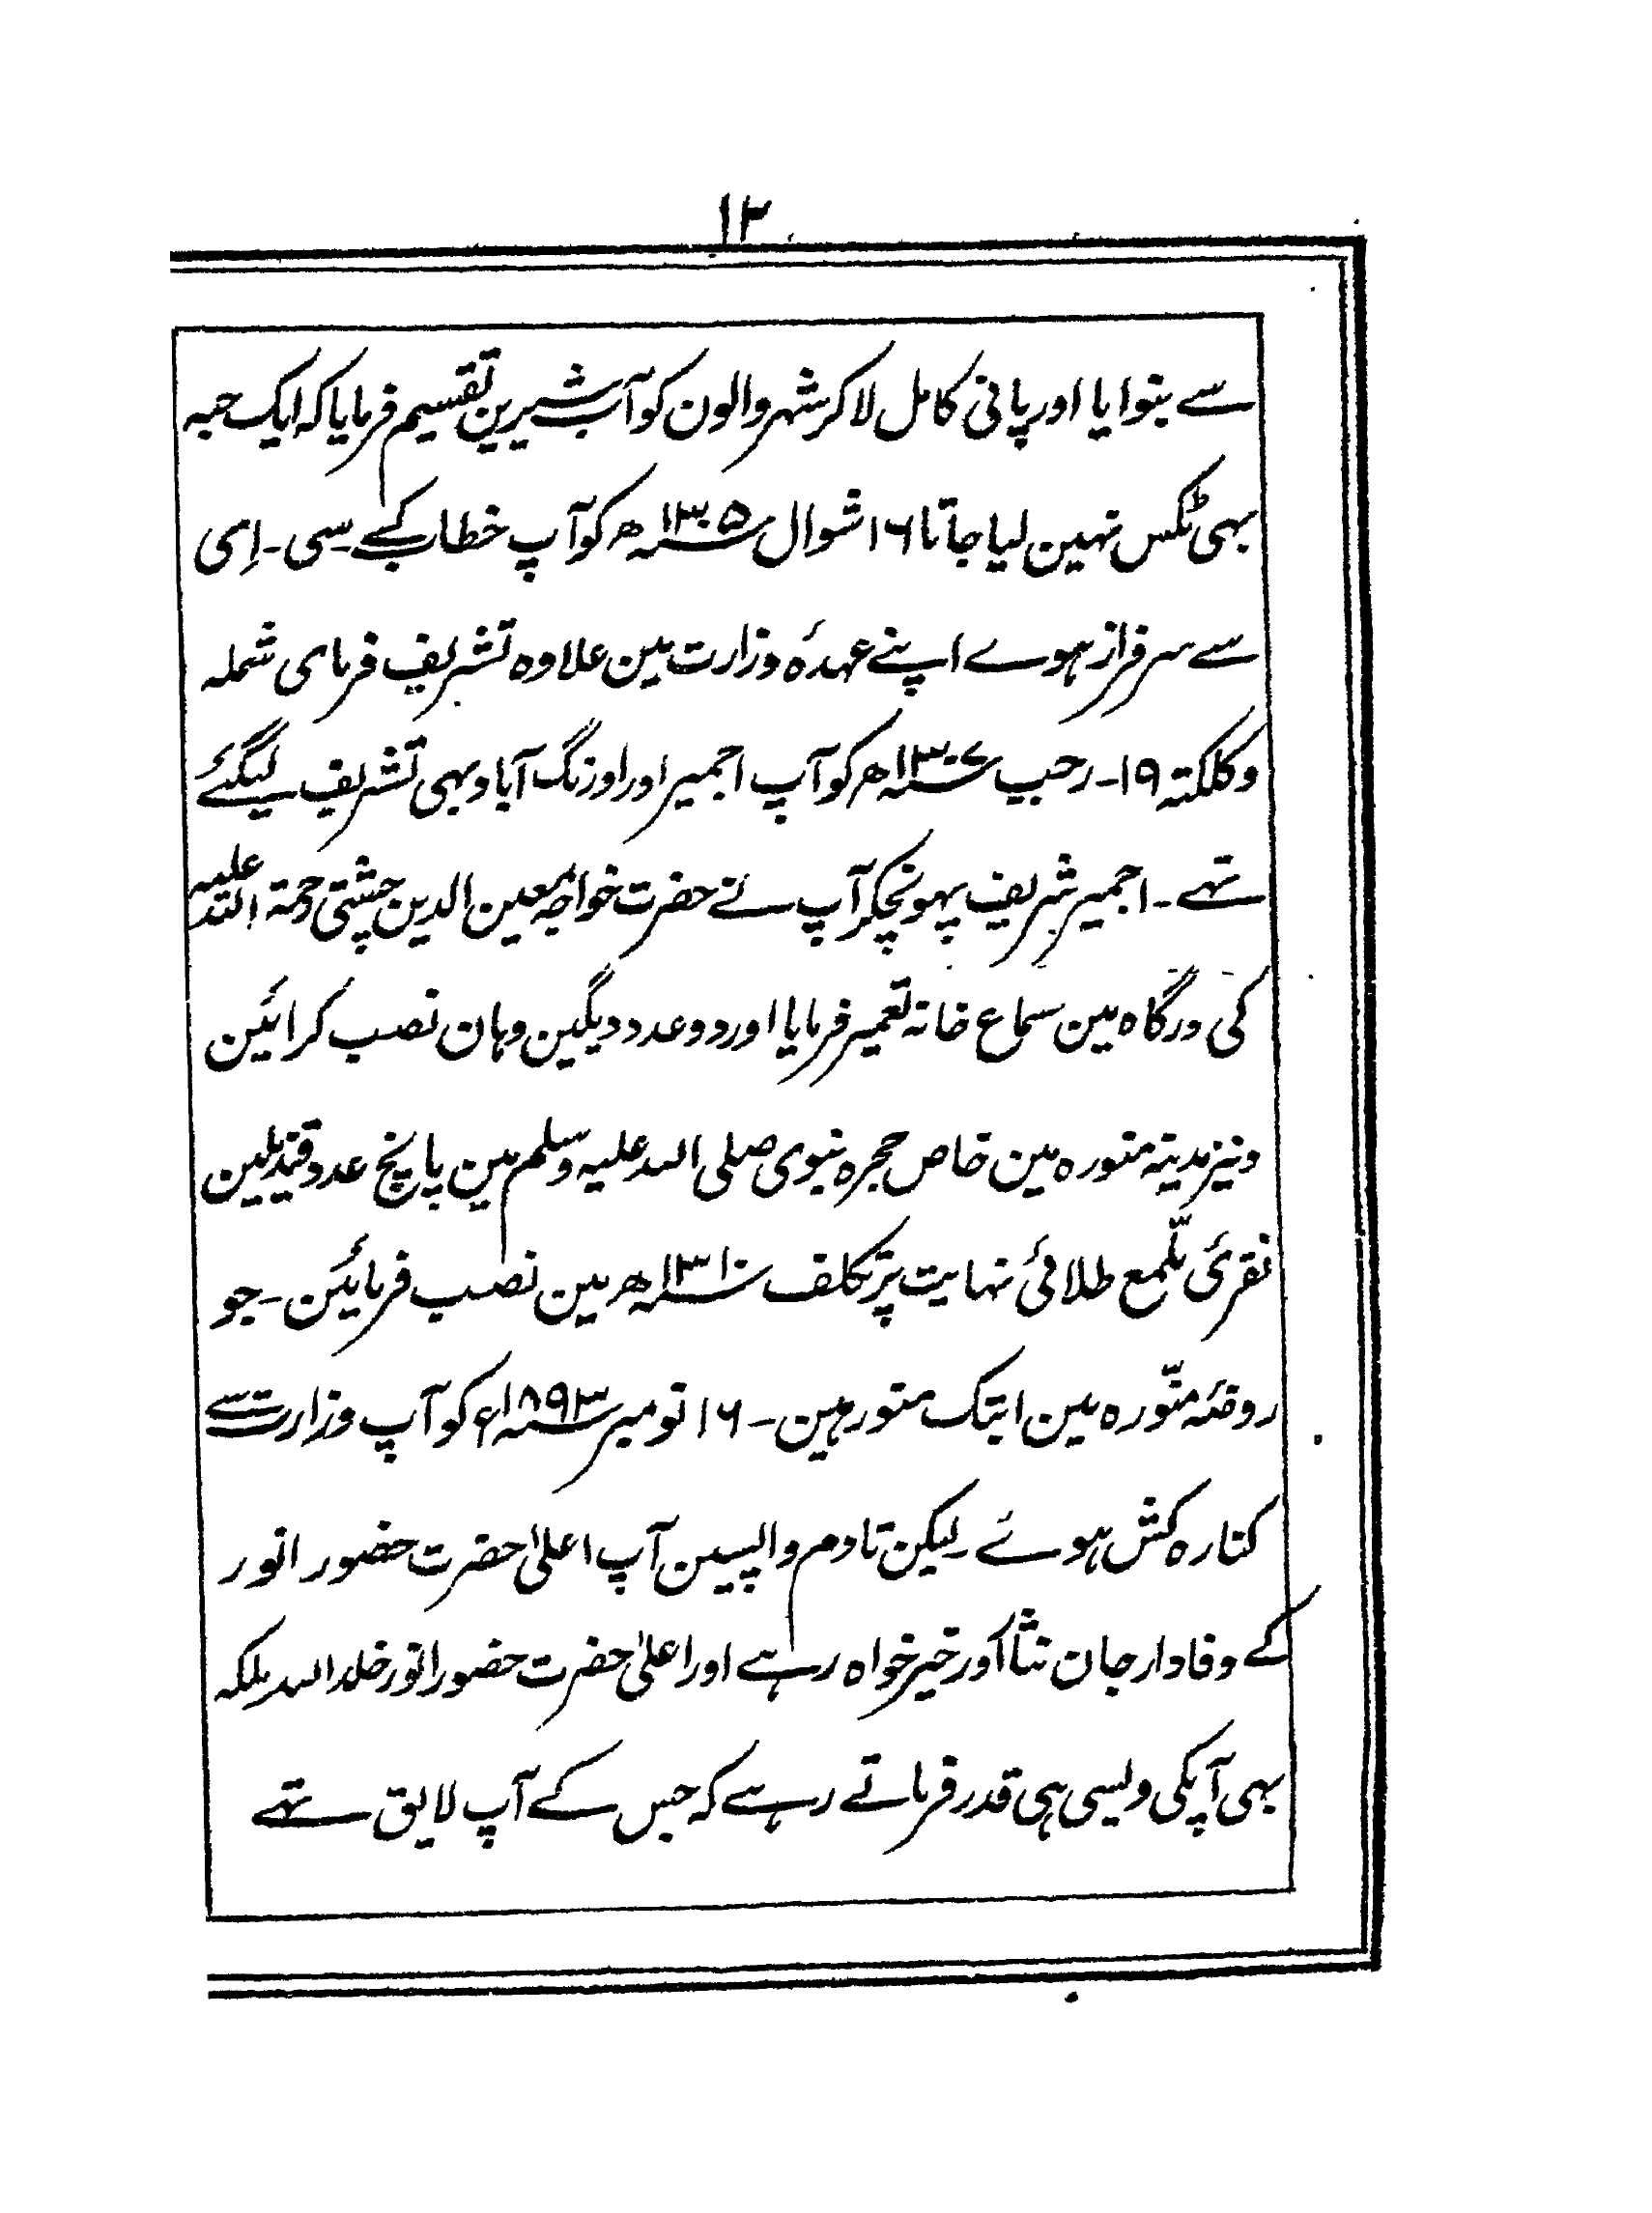 ۱۳
سے بنوایا اور پانی کامل لاکر شہر والون کو آب شیرین تقسیم فرمایا کہ ایک حبہ
بہی ٹکس نہین لیا جاتا ۱۶ شوال سنہ ۱۳۰۵ھ کو آپ خطاب کے ۔سی ۔اِی
سے سرفراز ہوے اپنے عہدۂ وزارت مین علاوہ تشریف فرمای شملہ
و کلکتہ ۱۹۔ رجب سنہ ۱۳۰۷ھ کو آپ اجمیر اور اورنگ آباد بہی تشریف لیگئے
تہے ۔ اجمیر شریف پہونچکر آپ نے حضرت خواجہ معین الدین چشتی رحمۃ اللہ علیہ
کی درگاہ مین سماع خانہ تعمیر فرمایا اور دو عدد دیگین وہان نصب کرائین
ونیز مدینہ منورہ مین خاص حجرہ نبوی صلی اللہ علیہ وسلم مین پانچ عدد قندیلین
نقرئی ملمع طلائی نہایت پرتکلف سنہ ۱۳۱۰ھ مین نصب فرمائین ۔ جو
روضۂ منوّرہ مین ابتک منور ہین ۔ ۱۶ نومبر سنہ ۱۸۹۳ء کو آپ وزارت سے
کنارہ کش ہوئے ۔ لیکن تادم واپسین آپ اعلیٰ حضرت حضور انور
کے وفادار جان نثار اور خیر خواہ رہے اور اعلیٰ حضرت حضور انور خلد اللہ ملکہ
بہی آپکی ویسی ہی قدر فرماتے رہے کہ جس کے آپ لایق تہے